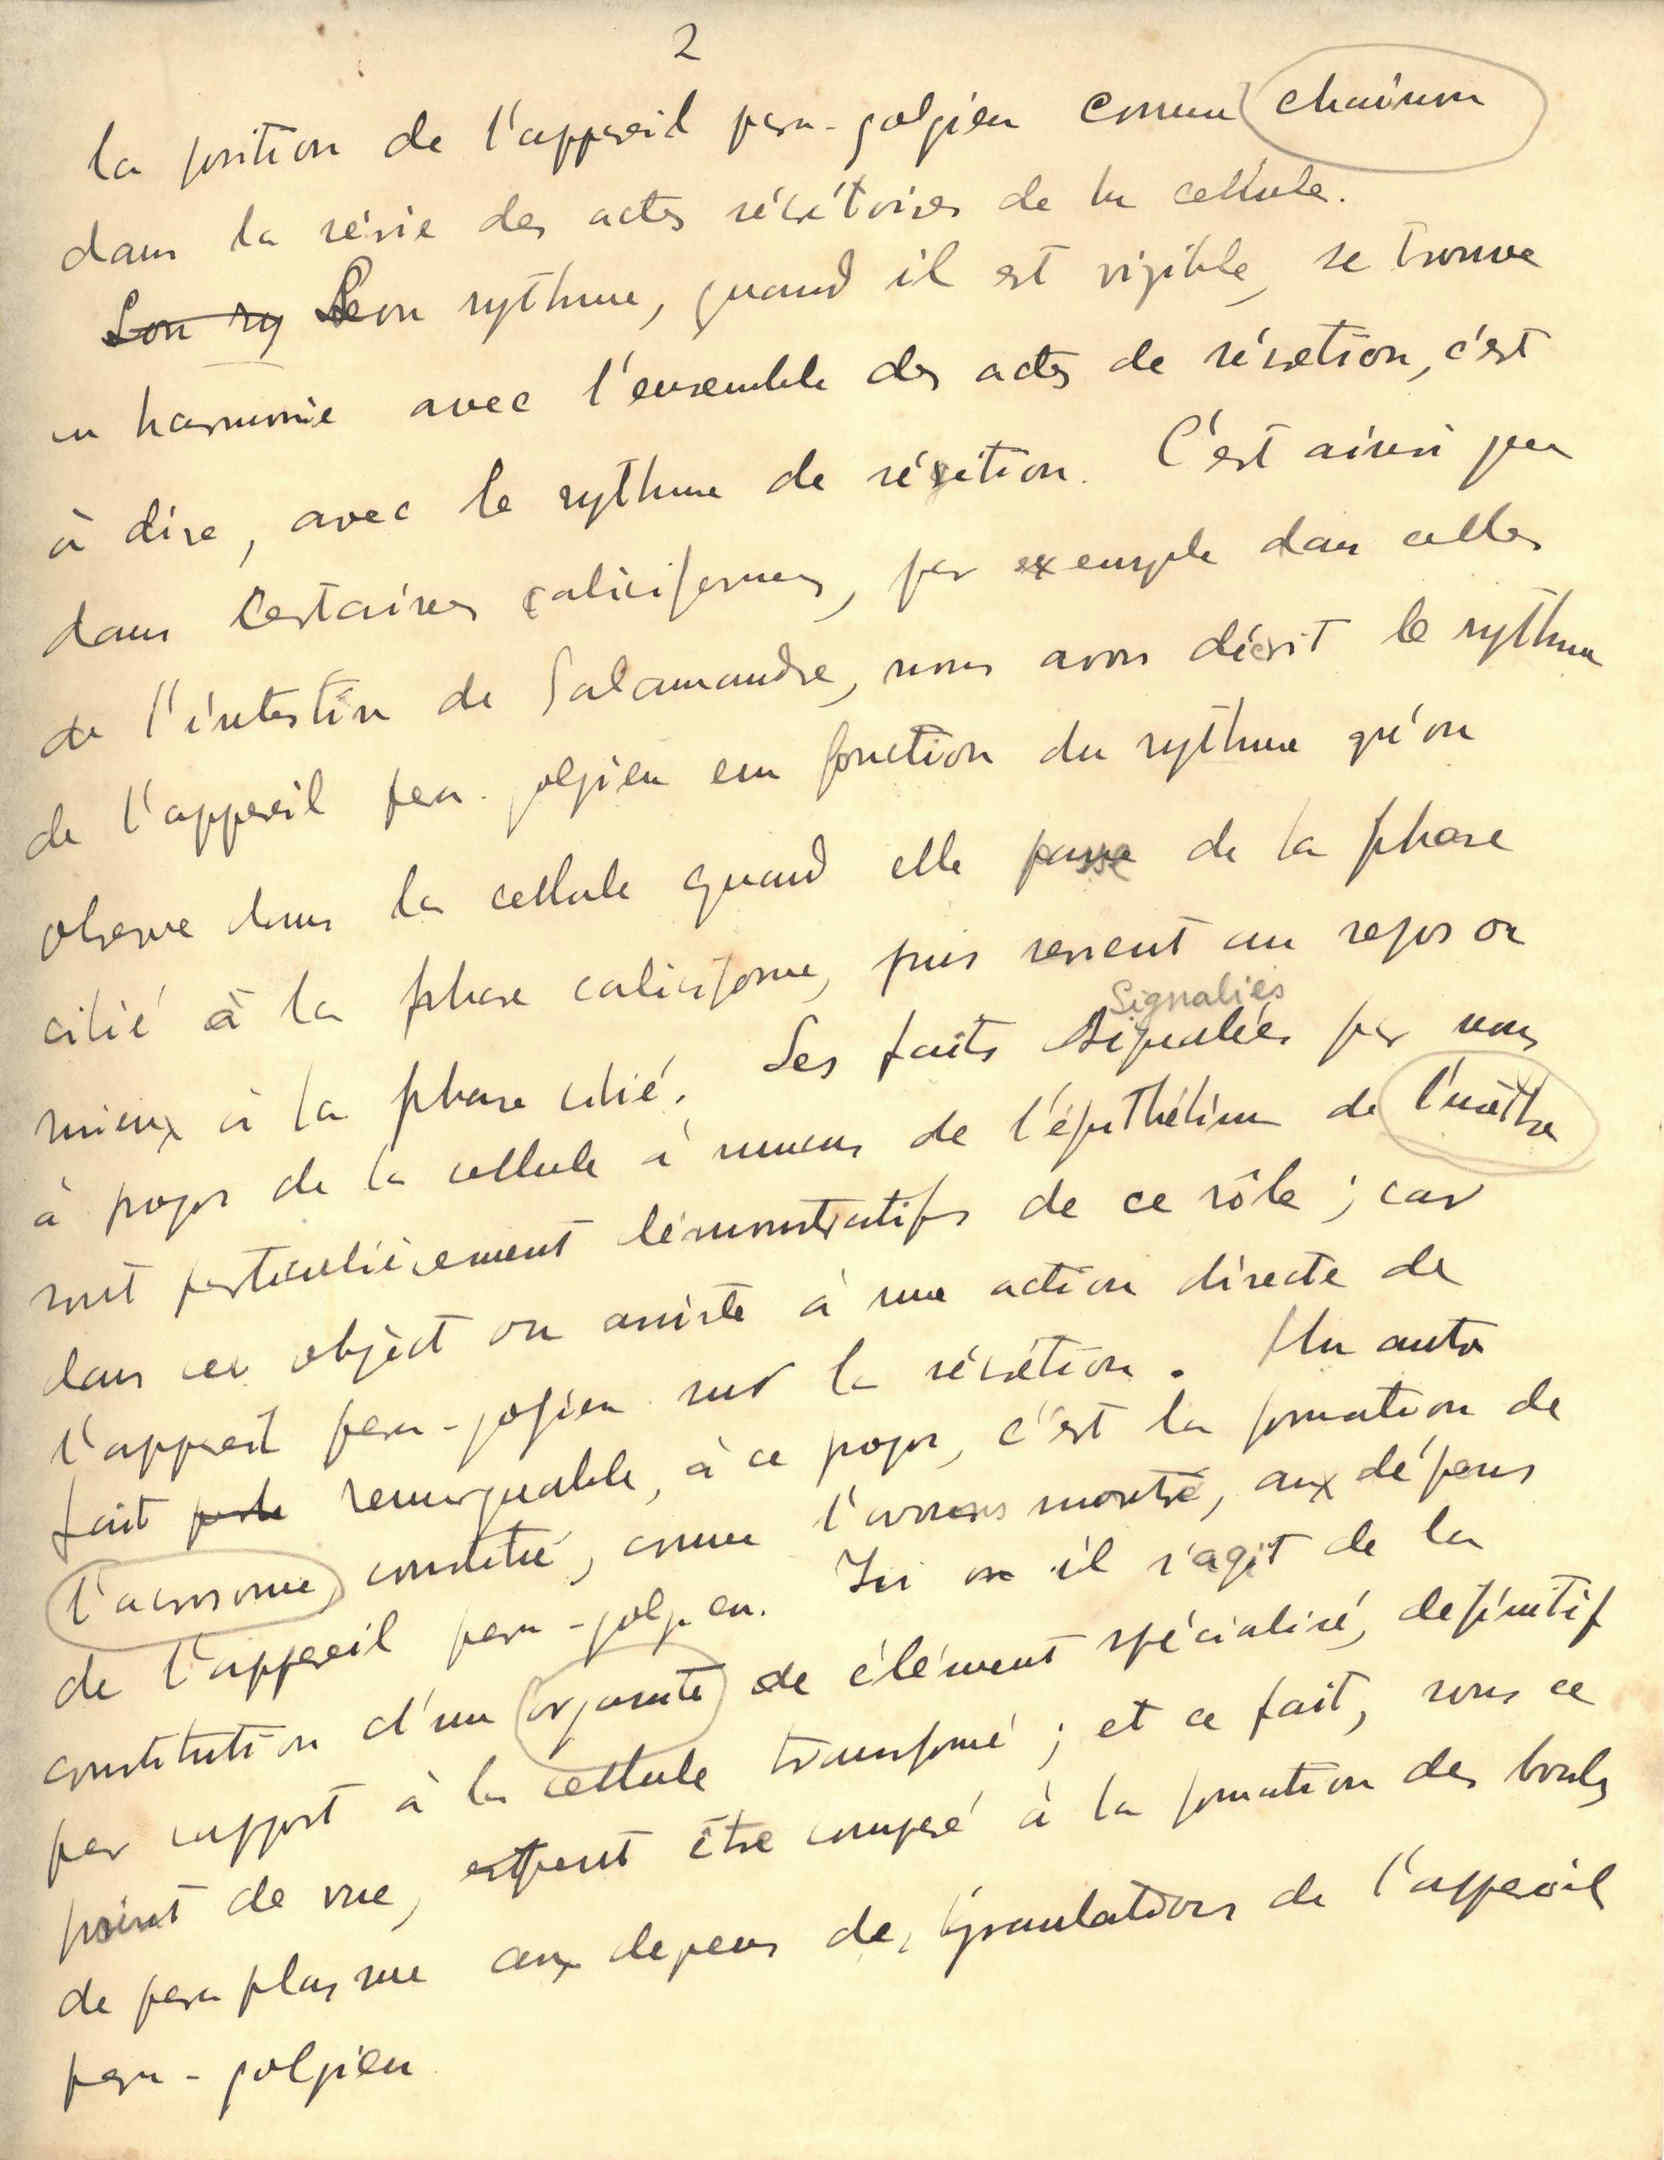 2
la position de l'appareil para-golgien comme chaînon
dans la série des actes sécrétoires de la cellule.
Son ry Son rythme, quand il est visible, se trouve
en harmonie avec l'ensemble des actes de sécrétion, c'est
à dire, avec le rythme de sécrétion. C'est ainsi que
dans certaines caliciformes, par exemple dans celles
de l'intestin de Salamandre, nous avons décrit le rythme
de l'appareil para-golgien en fonction du rythme qu'on
observe dans la cellule quand elle passe de la phase
cilié à la phase caliciforme, puis revient au repos ou
Signaliés
mieux à la phase cilié. Les faits signaliés par nous
à propos de la cellule à mucus de l'épithélium de l'urèthre
sont particulièrement démonstratifs de ce rôle; car
dans cet objèct on assiste à une action directe de
l'appareil para-golgien sur la sécrétion. Un autre
fait remarquable, à ce propos, c'est la formation de
l'acrosome, constitué, comme l'avons montré, aux dépens
de l'appareil para-golgien. Ici il s'agit de la
constitution d'un organite de élément spécialisé, definitif
par rapport à la cellule transformé; et ce fait, sous ce
point de vue, peut être comparé à la formation des boules
de paraplasme aux depens des granulations de l'appareil
para-golgien